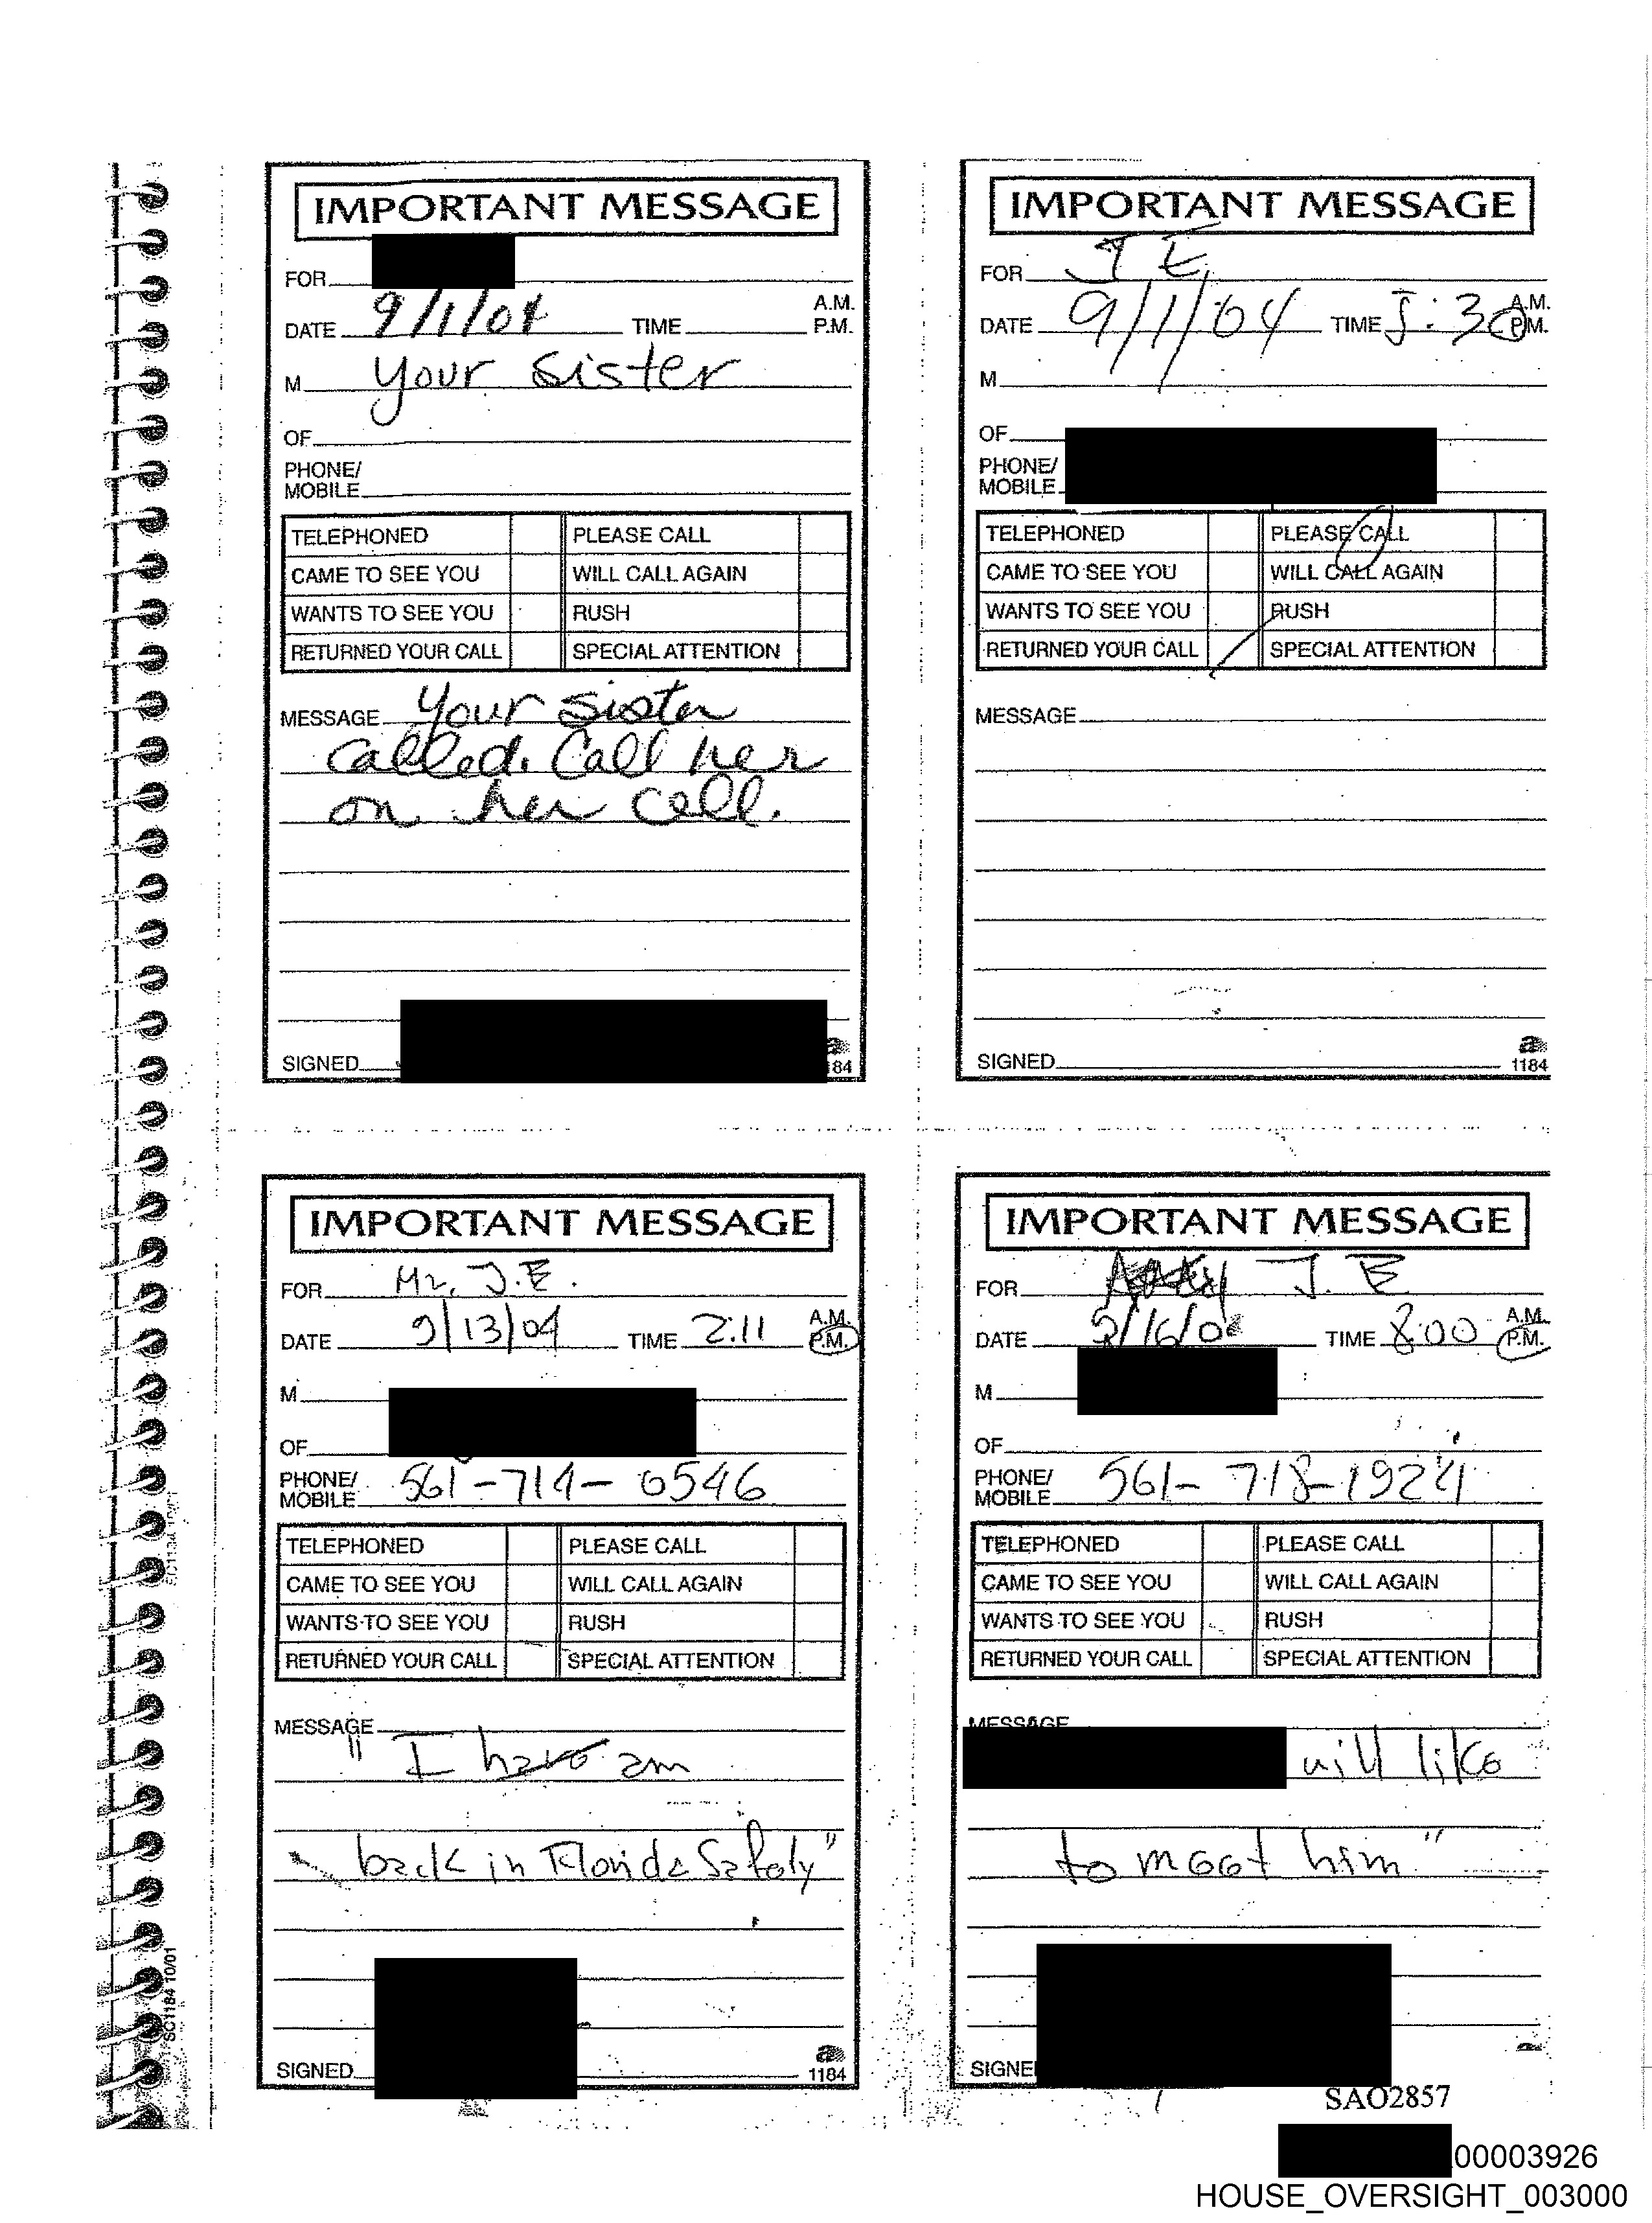 IMPORTANT MESSAGE
FOR
DATE 9/1/04 TIME A.M. P.M.
M your sister
OF
PHONE/ MOBILE
TELEPHONED PLEASE CALL
CAME TO SEE YOU WILL CALL AGAIN
WANTS TO SEE YOU RUSH
RETURNED YOUR CALL SPECIAL ATTENTION
MESSAGE Your sister
called. Call her
on her cell.
SIGNED
184
IMPORTANT MESSAGE
FOR J E.
DATE 9/1/04 TIME 5:30 A.M. P.M.
M
OF
PHONE/ MOBILE
TELEPHONED PLEASE CALL
CAME TO SEE YOU WILL CALL AGAIN
WANTS TO SEE YOU RUSH
RETURNED YOUR CALL SPECIAL ATTENTION
MESSAGE
SIGNED
a
1184
IMPORTANT MESSAGE
FOR Mr. J.E.
DATE 9/13/04 TIME 2:11 A.M. P.M.
M
OF
PHONE/ MOBILE 561-714-0546
TELEPHONED PLEASE CALL
CAME TO SEE YOU WILL CALL AGAIN
WANTS TO SEE YOU RUSH
RETURNED YOUR CALL SPECIAL ATTENTION
MESSAGE
" I have am
back in Florida Safely"
SIGNED
a
1184
IMPORTANT MESSAGE
FOR J. E
DATE TIME 8:00 A.M. P.M.
M
OF
PHONE/ MOBILE 561-718-1924
TELEPHONED PLEASE CALL
CAME TO SEE YOU WILL CALL AGAIN
WANTS TO SEE YOU RUSH
RETURNED YOUR CALL SPECIAL ATTENTION
MESSAGE
will like
to meet him"
SIGNE
SC1184 10/01
SAO2857
00003926
HOUSE_OVERSIGHT_003000